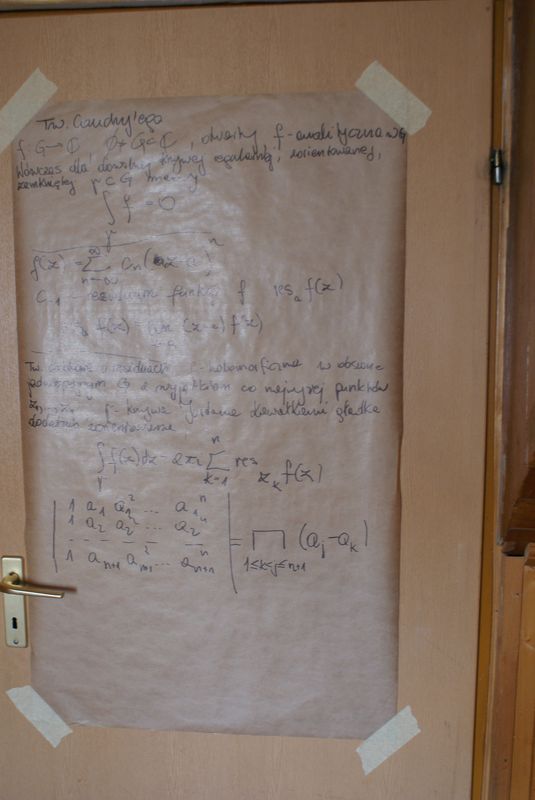 Tw. Cauchy'ego
f: G→ℂ ∅≠G⊂ℂ, otwarty f-analityczna w G
Wówczas dla dowolnej krzywej regularnej, zorientowanej,
zamkniętej γ⊂G mamy
∫_γ f = 0
f(z) = ∑_{n=-∞}^{∞} c_n(z-a)^n
c_{-1} - residuum funkcji f res_a f(z)
f(z) lim (z-a) f(z)
Tw. o residuach f-holomorficzna w obszarze
G z wyjątkiem co najwyżej punktów
γ-krzywa Jordana kawałkami gładka
dodatnio zorientowana
∫_γ f(z)dz = 2πi ∑_{k=1}^{n} res_{z_k} f(z)
| 1 a_1 a_1^2 ... a_1^n |
| 1 a_2 a_2^2 ... a_2^n |
| - - - - - - - | = ∏_{1≤k<j≤n+1} (a_j-a_k)
| 1 a_{n+1} a_{n+1}^2 ... a_{n+1}^n |